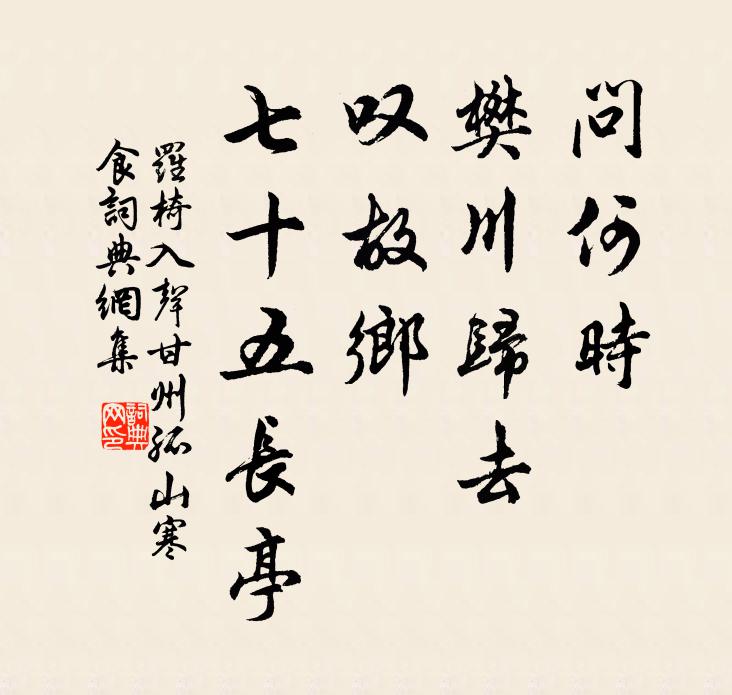 問何時
樊川歸去
叹故鄉
七十五長亭
羅椅入聲甘州孤山寒
食詞典網集
詞典网印